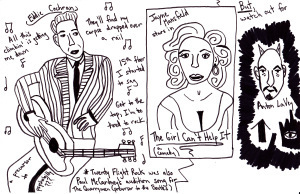 Eddie Cochran:
All this
climbin' is getting
me down
They'll find my
corpse draped over
a rail
15th floor
I started
to sag
Get to the
top, I'm too
tired to rock
Jayne
Mansfield
stars in
The Girl Can't Help It
(a comedy)
But,
watch out for
Anton LaVey
* Twenty Flight Rock was also
Paul McCartney's audition song for
The Quarrymen (precursor to the Beatles)